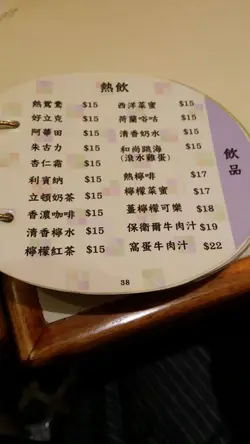 熱飲
熱鴛鴦 $15
好立克 $15
阿華田 $15
朱古力 $15
杏仁霜 $15
利賓納 $15
立頓奶茶 $15
香濃咖啡 $15
清香檸水 $15
檸檬紅茶 $15
西洋菜蜜 $15
荷蘭谷咕 $15
清香奶水 $15
和尚跳海 $15
(滾水雞蛋)
熱檸啡 $17
檸檬菜蜜 $17
薑檸檬可樂 $18
保衛爾牛肉汁 $19
窩蛋牛肉汁 $22
飲品
38